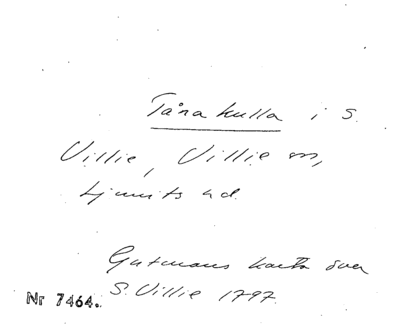 Tåra kulla i S.
Villie, Villie sn,
Ljunits hd.
Gutmans karta över
S. Villie 1797.
Nr 7464.